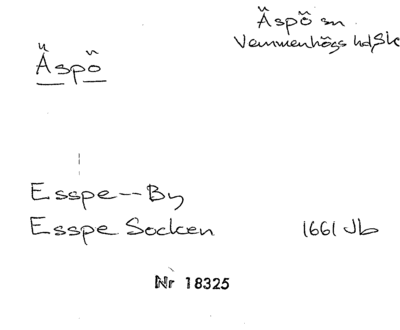 Äspö sn
Vemmenhögs hd, Sk
Äspö
Esspe--By
Esspe Socken 1661 Jb
Nr 18325